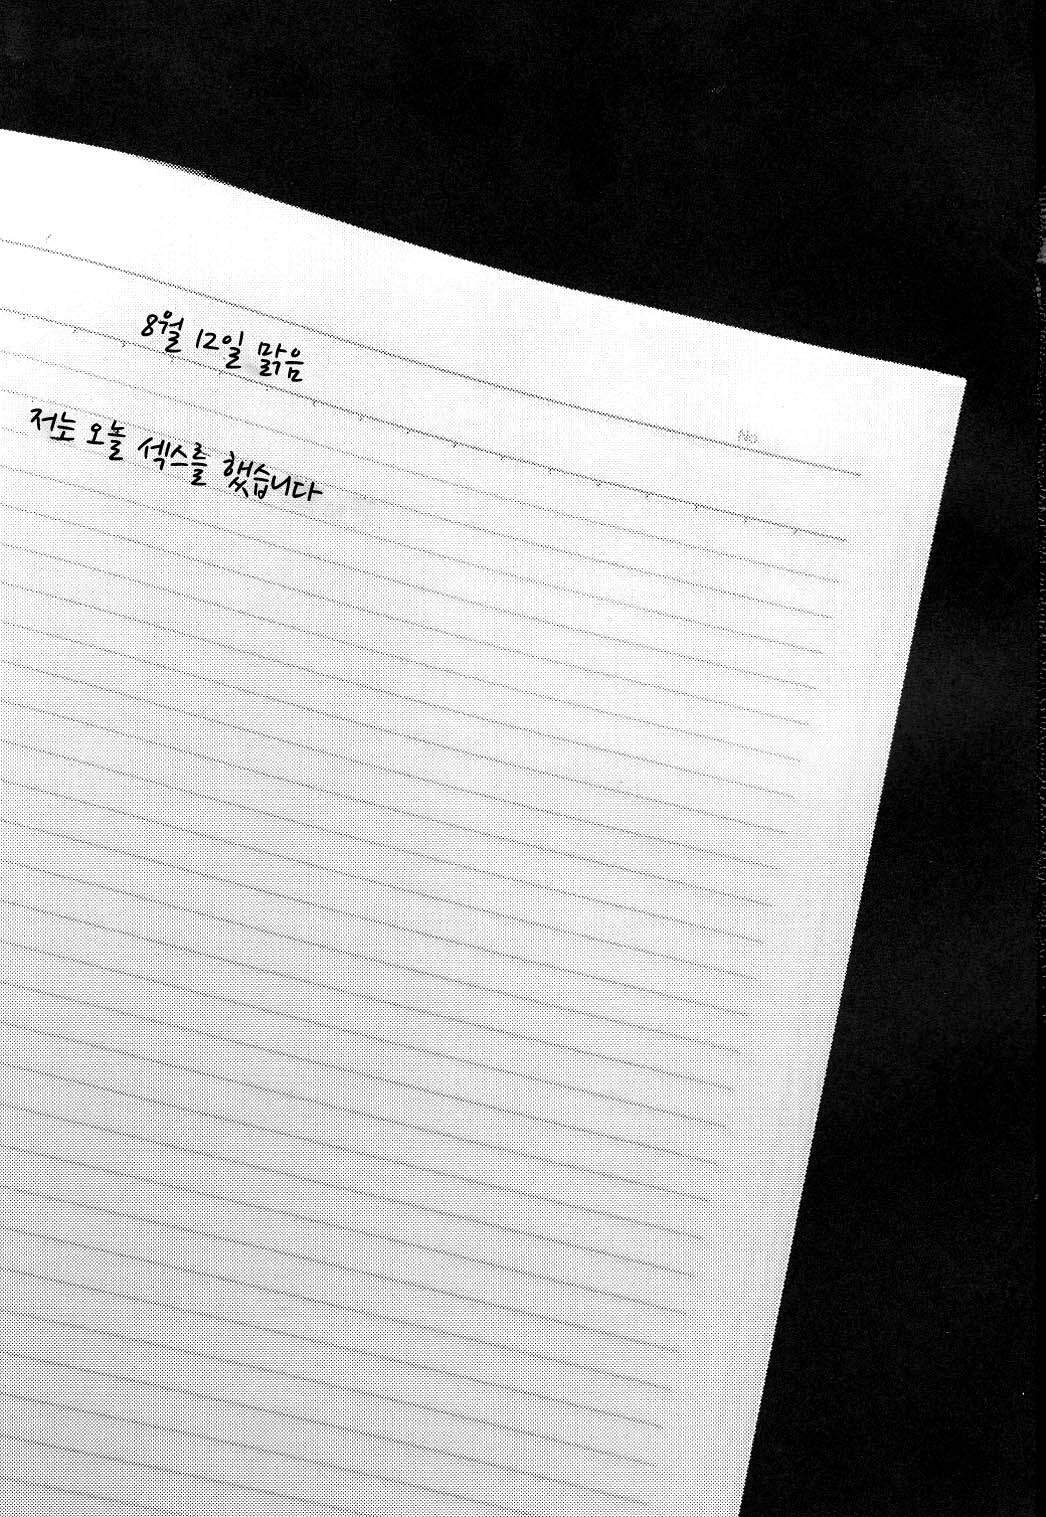 No.
8월 12일 맑음
저는 오늘 섹스를 했습니다